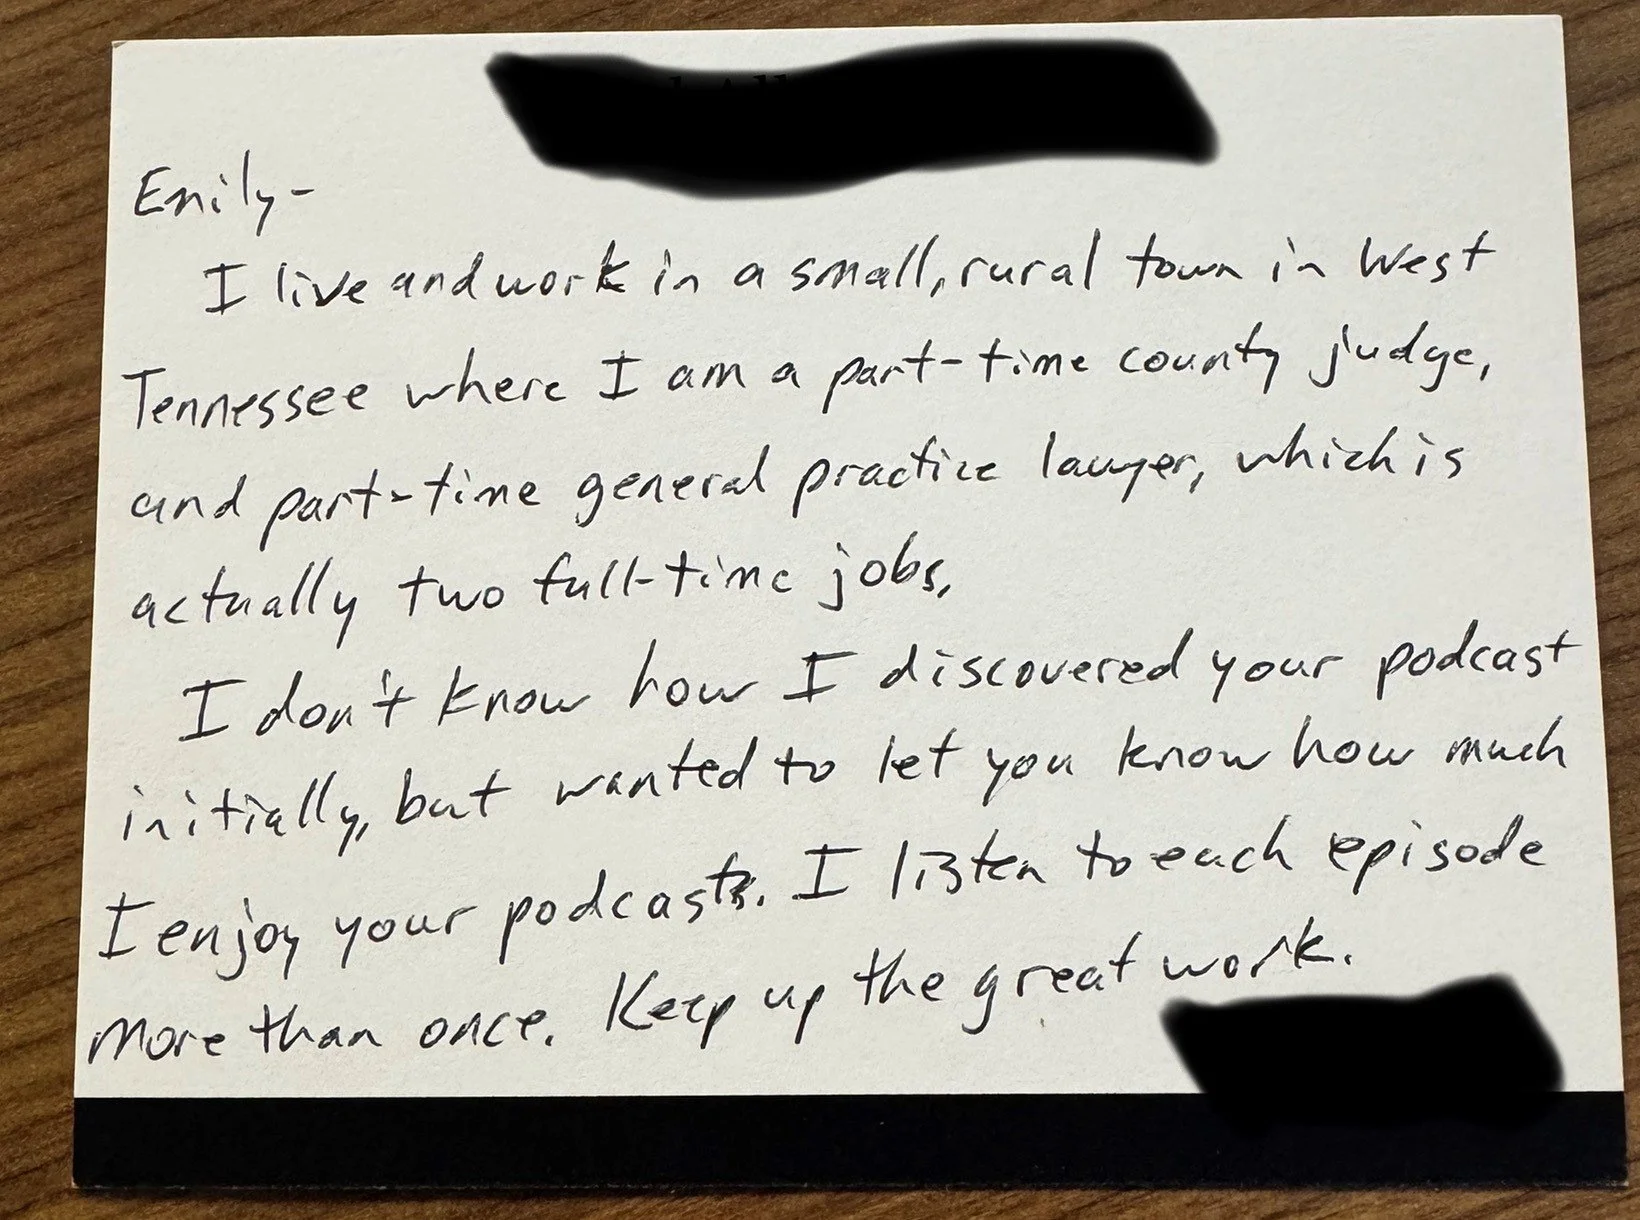 Emily-
I live and work in a small, rural town in West
Tennessee where I am a part-time county judge,
and part-time general practice lawyer, which is
actually two full-time jobs.
I don't know how I discovered your podcast
initially, but wanted to let you know how much
I enjoy your podcasts. I listen to each episode
more than once. Keep up the great work.